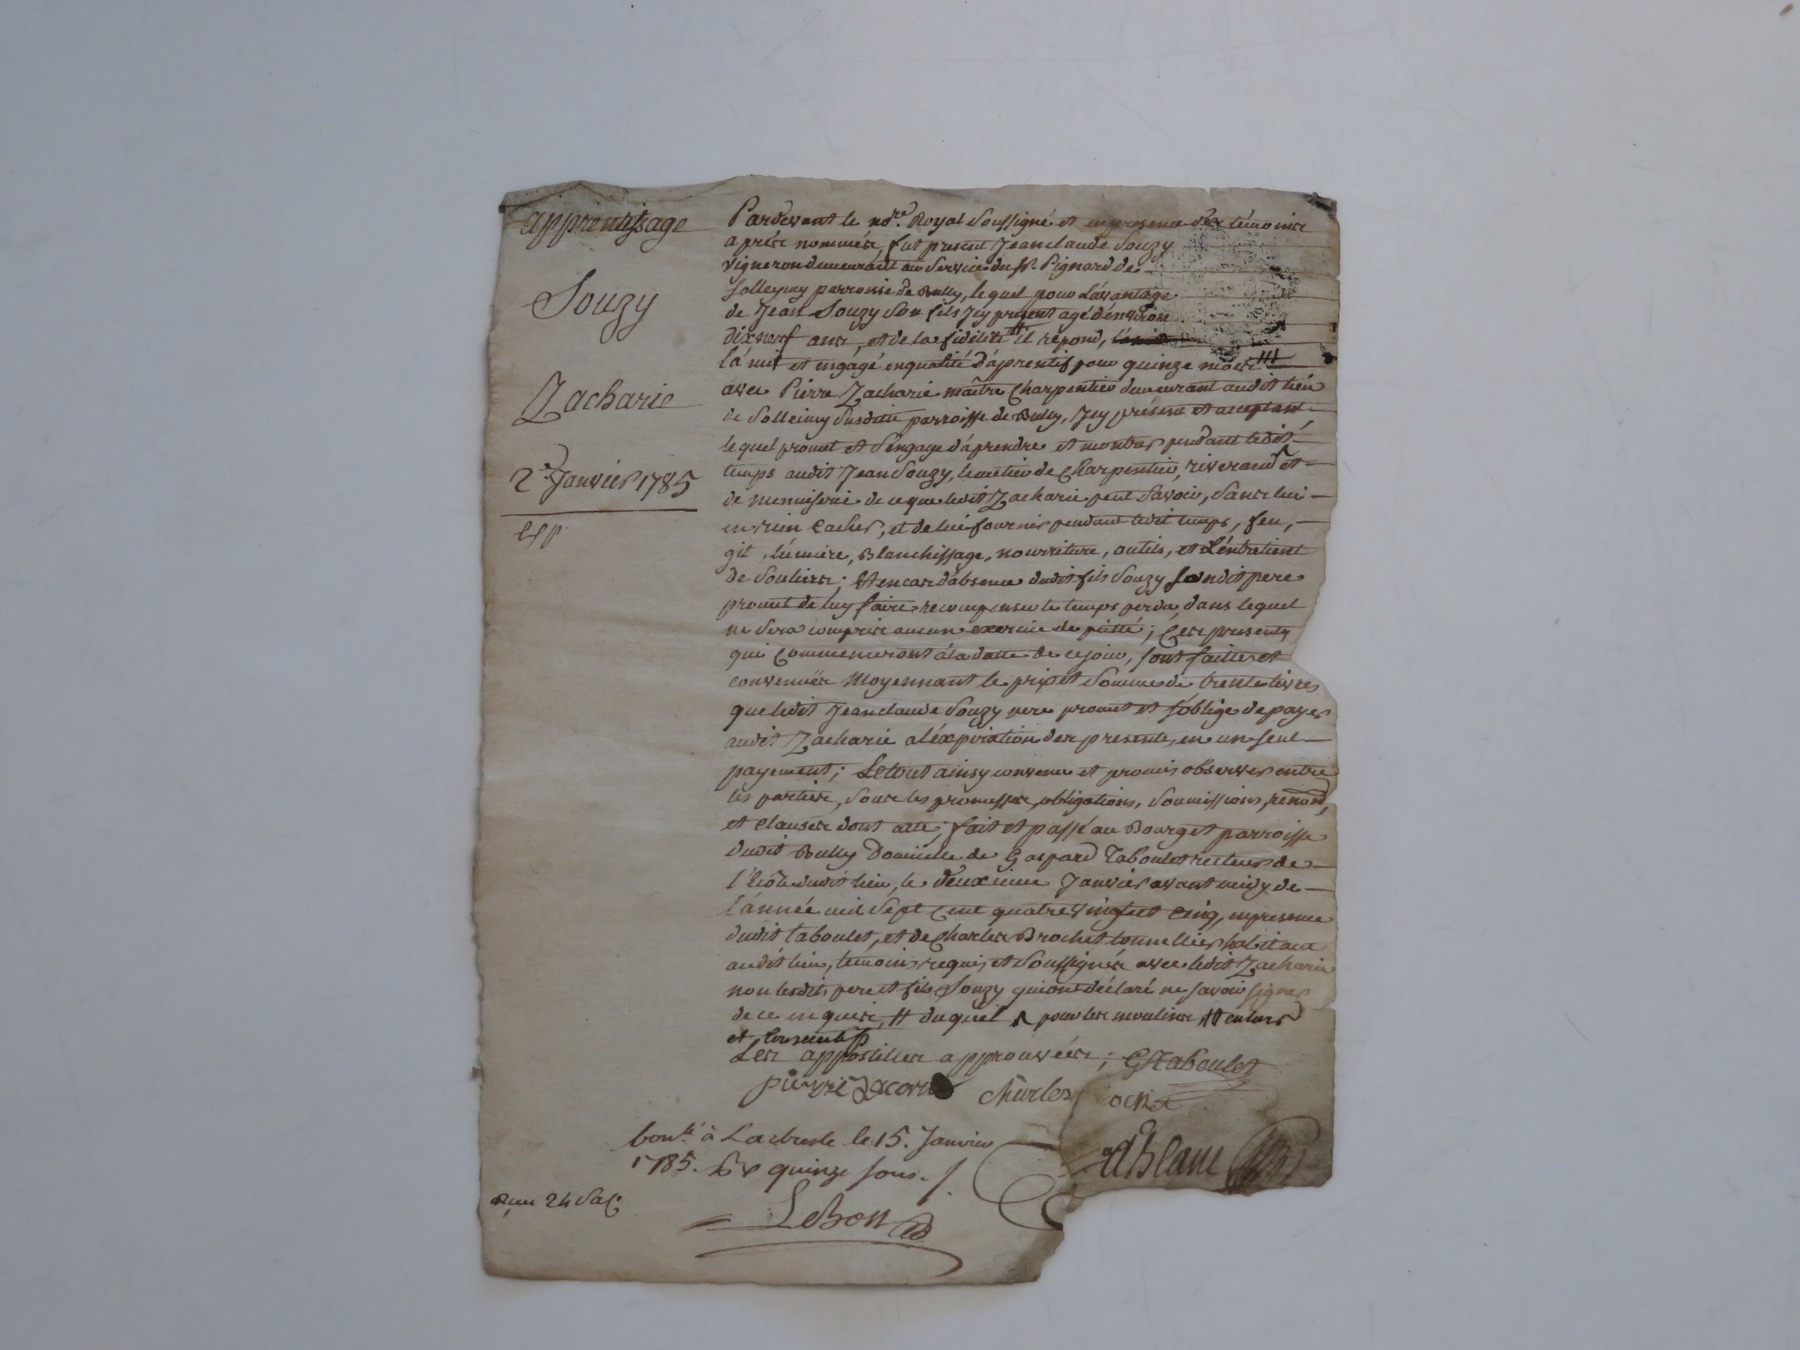 apprentissage
Souzy
Zacharie
2e. Janvier 1785
exp
Pardevant le nore. Royal Soussigné et en presence des témoins
aprés nommés, fut present Jean claude Souzy
vigneron demeurant au Service du Sr. Pignard de
Solleymy parroisse de Bully, lequel pour L'avantage
de Jean Souzy Son fils Icy present agé dénviron
dixneuf ans, et de la fidélité # il répond,
lá mis et engagé enqualité dáprentif pour quinze mois
avec Pierre Zacharie maître Charpentier demeurant audit lieu
de Solleimy Susdite parroisse de Bully, Icy présent et acceptant
lequel promet et Séngage dáprendre et montrer pendant ledit
temps audit Jean Souzy, le metier de Charpentier, riverand et
de menuiserie de ce que ledit Zacharie peut Savoir, Sans lui
en rien cacher, et de lui fournir pendant ledit temps, feu,
git, lúmiere, Blanchissage, nourriture, outils, et L'éntretient
de Souliers; Et encas d'absence dudit fils Souzy Sondit pere
promet de luy faire recompenser le temps perdu, dans lequel
ne Sera compris aucun exercice de piété; Ces presentes
qui Commenceront á la datte de ce jour, Sont faittes et
convenuës Moyennant le prix et Somme de trente livres
que ledit Jean claude Souzy pere promet et S'óblige de payer
audit Zacharie a léxpiration des presentes, en un Seul
payement; Le tout ainsy convenu et promis observer entre
les parties, Sous les promesses, obligations, Soumissions, renond,
et Clauses dont acte; fait et passé au Bourg et parroisse
dudit Bully Domicile de Gaspard Taboulet recteur de
l'écôle dudit lieu, le deuxieme Janvier avant midy de
l'ánnée mil Sept Cent quatre vingt et Cinq, en presence
dudit Taboulet, et de Charles Brochet tonnellier habitant
audit lieu, temoins requis et Soussignés avec ledit Zacharie
non lesdits pere et fils Souzy qui ont déclaré ne Savoir Signer
de ce enquis, # duquel ^ pour les moulins
et
Les appostilles approuvées; G Taboulet
pierre zacarie Charles ochet
bon
lé à Larbresle le 15. Janvier
1785. quinze Sous.
Lebon